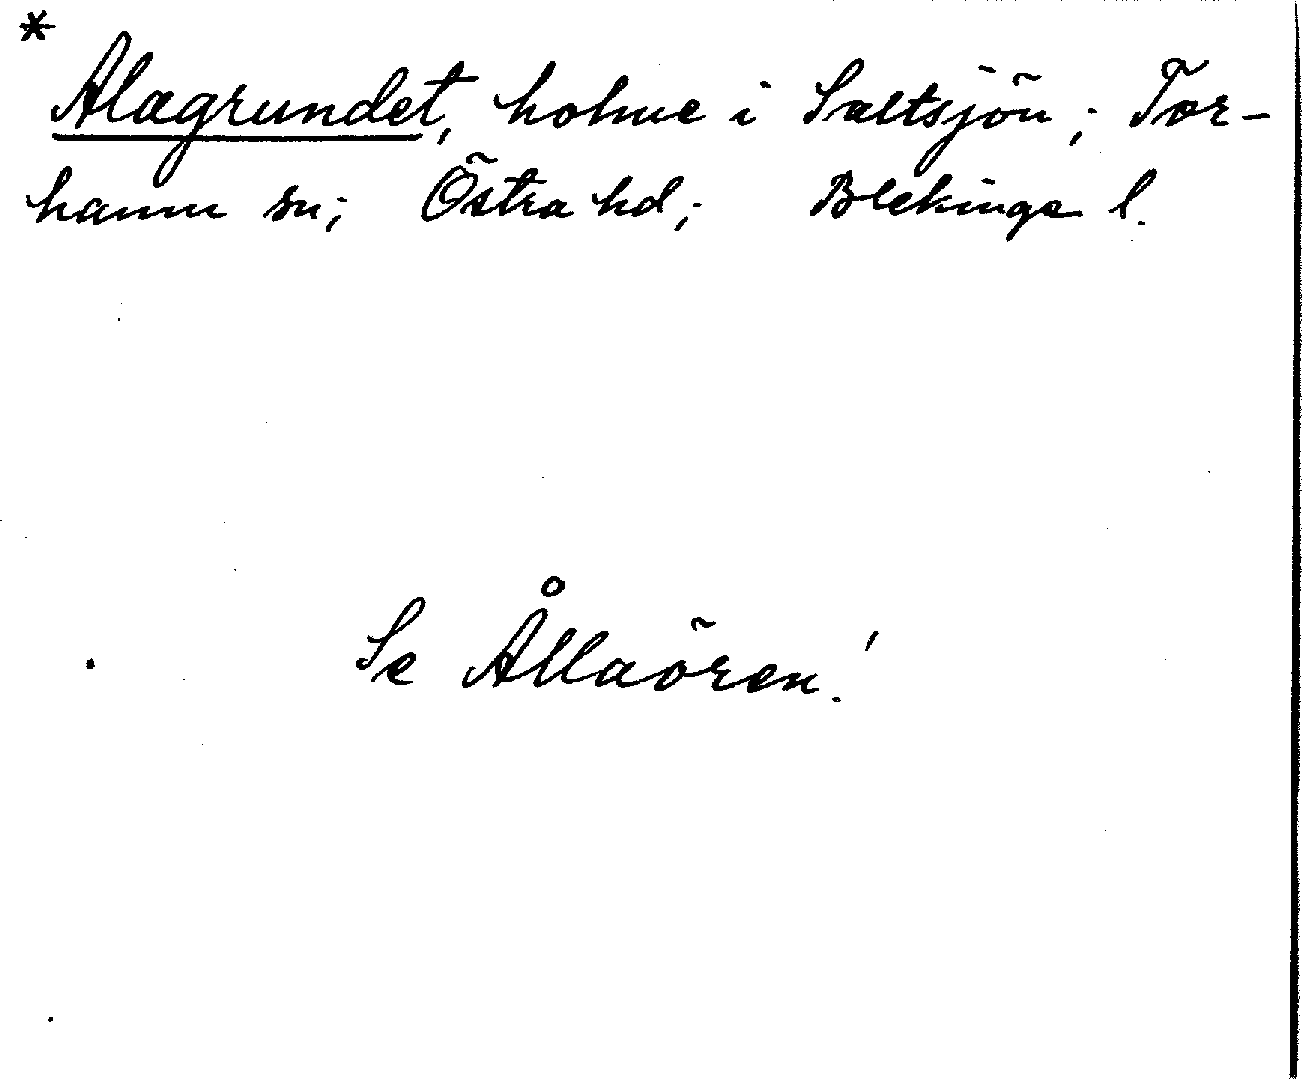 *
Alagrundet, holme i Saltsjön; Tor-
hamn sn; Östra hd; Blekinge l.
Se Ållaören!